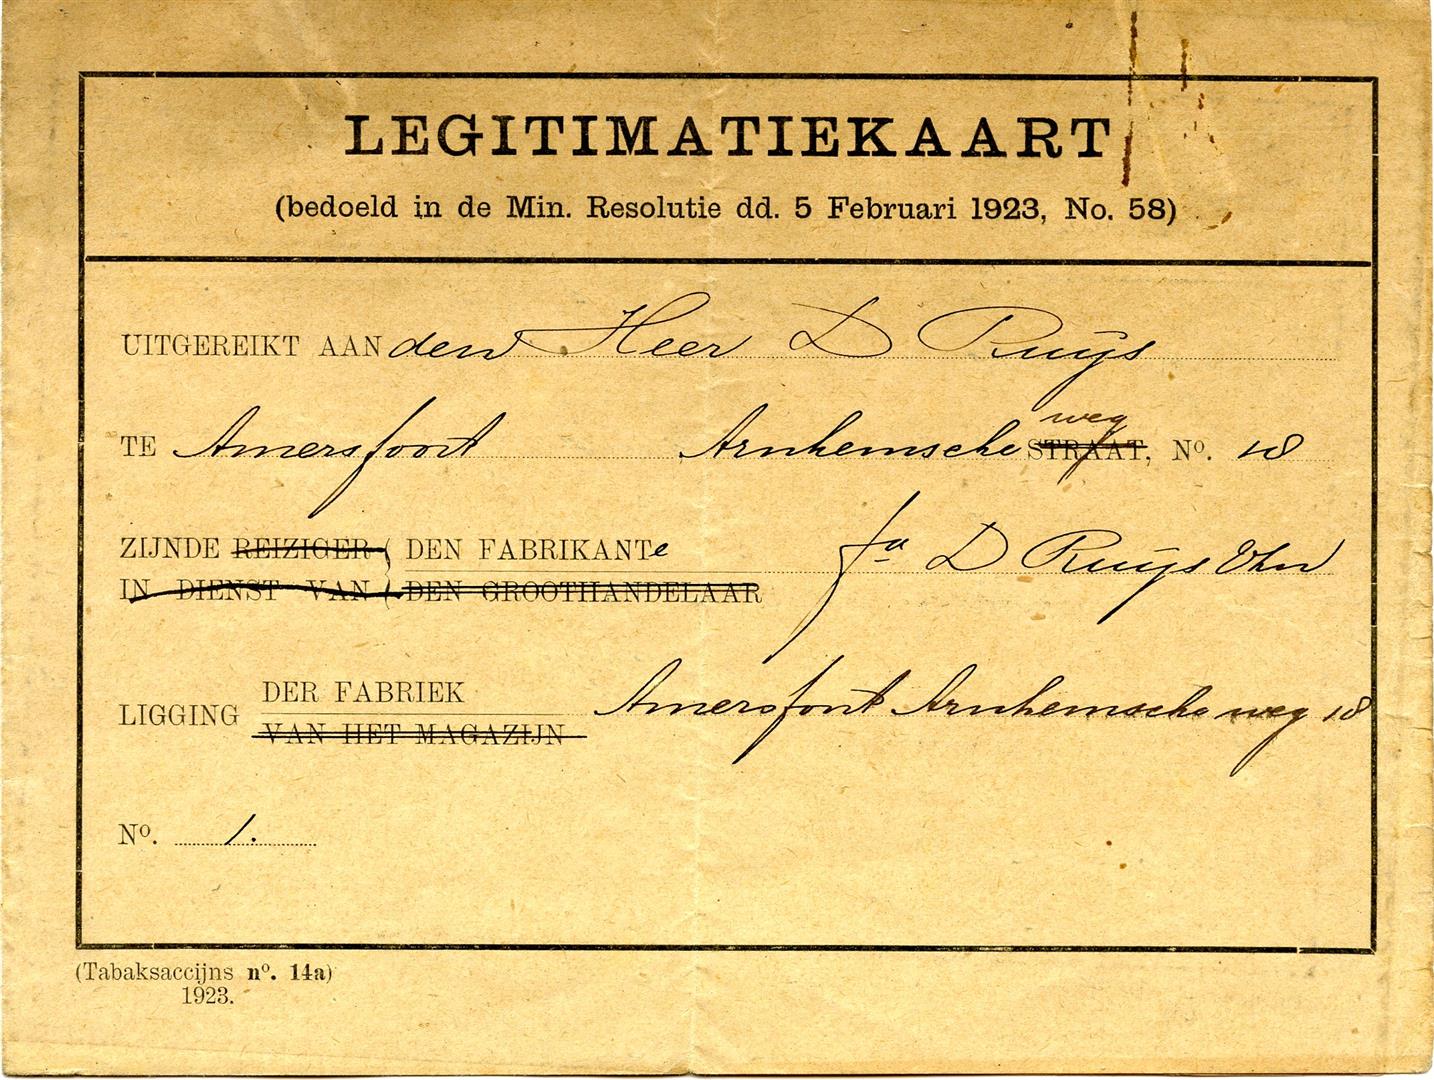 LEGITIMATIEKAART
(bedoeld in de Min. Resolutie dd. 5 Februari 1923, No. 58)
UITGEREIKT AAN den Heer D Ruijs
weg
TE Amersfoort, Arnhemsche STRAAT, Nº. 18
ZIJNDE REIZIGER DEN FABRIKANTe fa D Ruijs
IN DIENST VAN DEN GROOTHANDELAAR
DER FABRIEK
LIGGING Amersfoort Arnhemsche weg 18
VAN HET MAGAZIJN
Nº. 1.
(Tabaksaccijns nº. 14a)
1923.